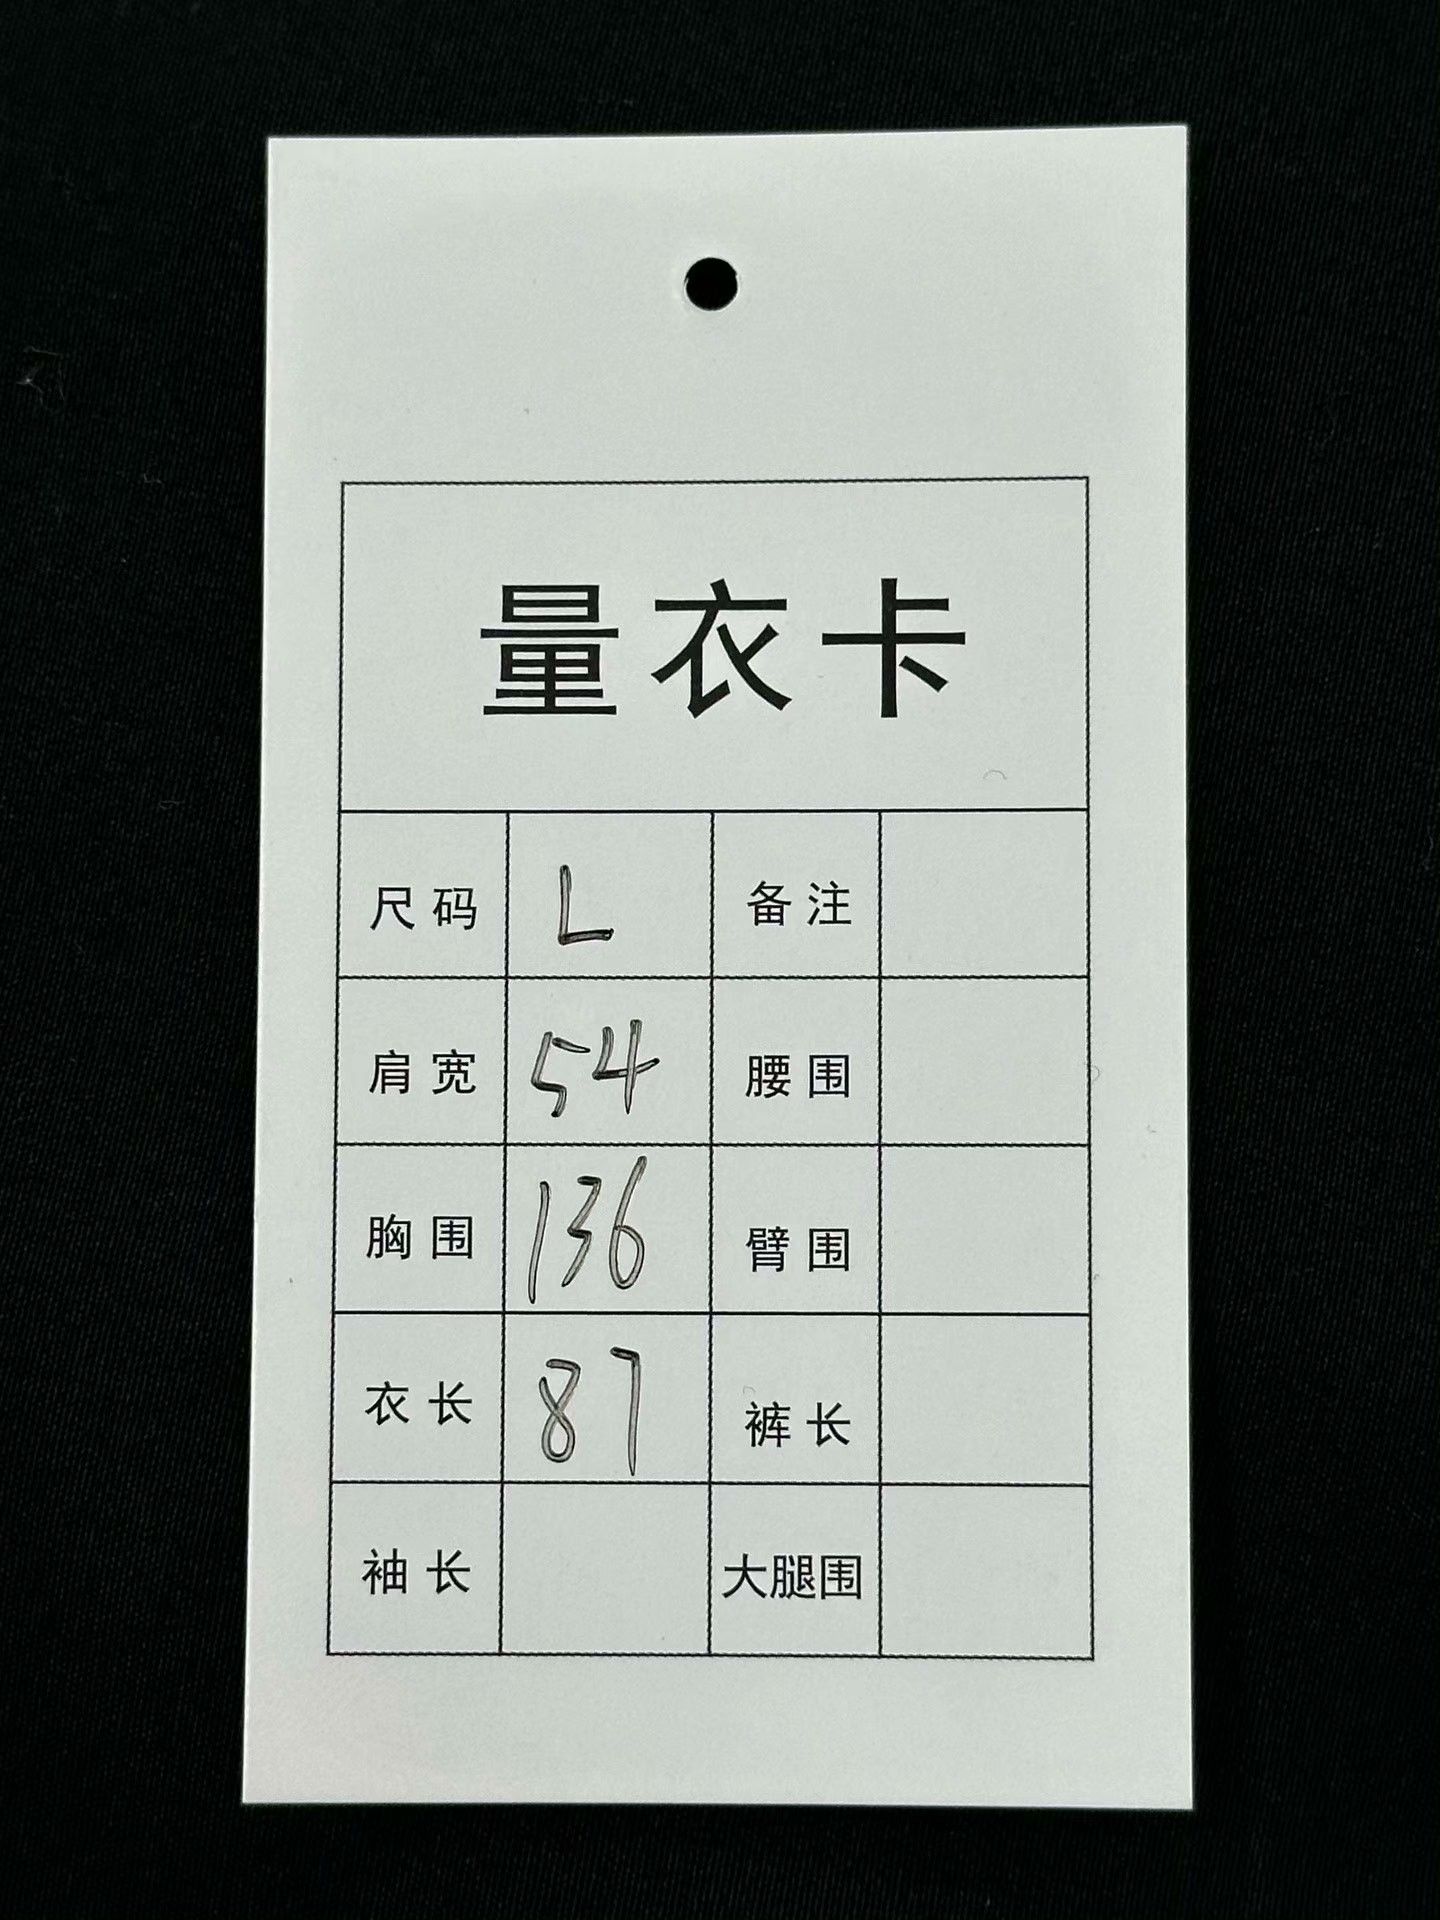 量衣卡
尺码 L 备注
肩宽 54 腰围
胸围 136 臂围
衣长 87 裤长
袖长 大腿围